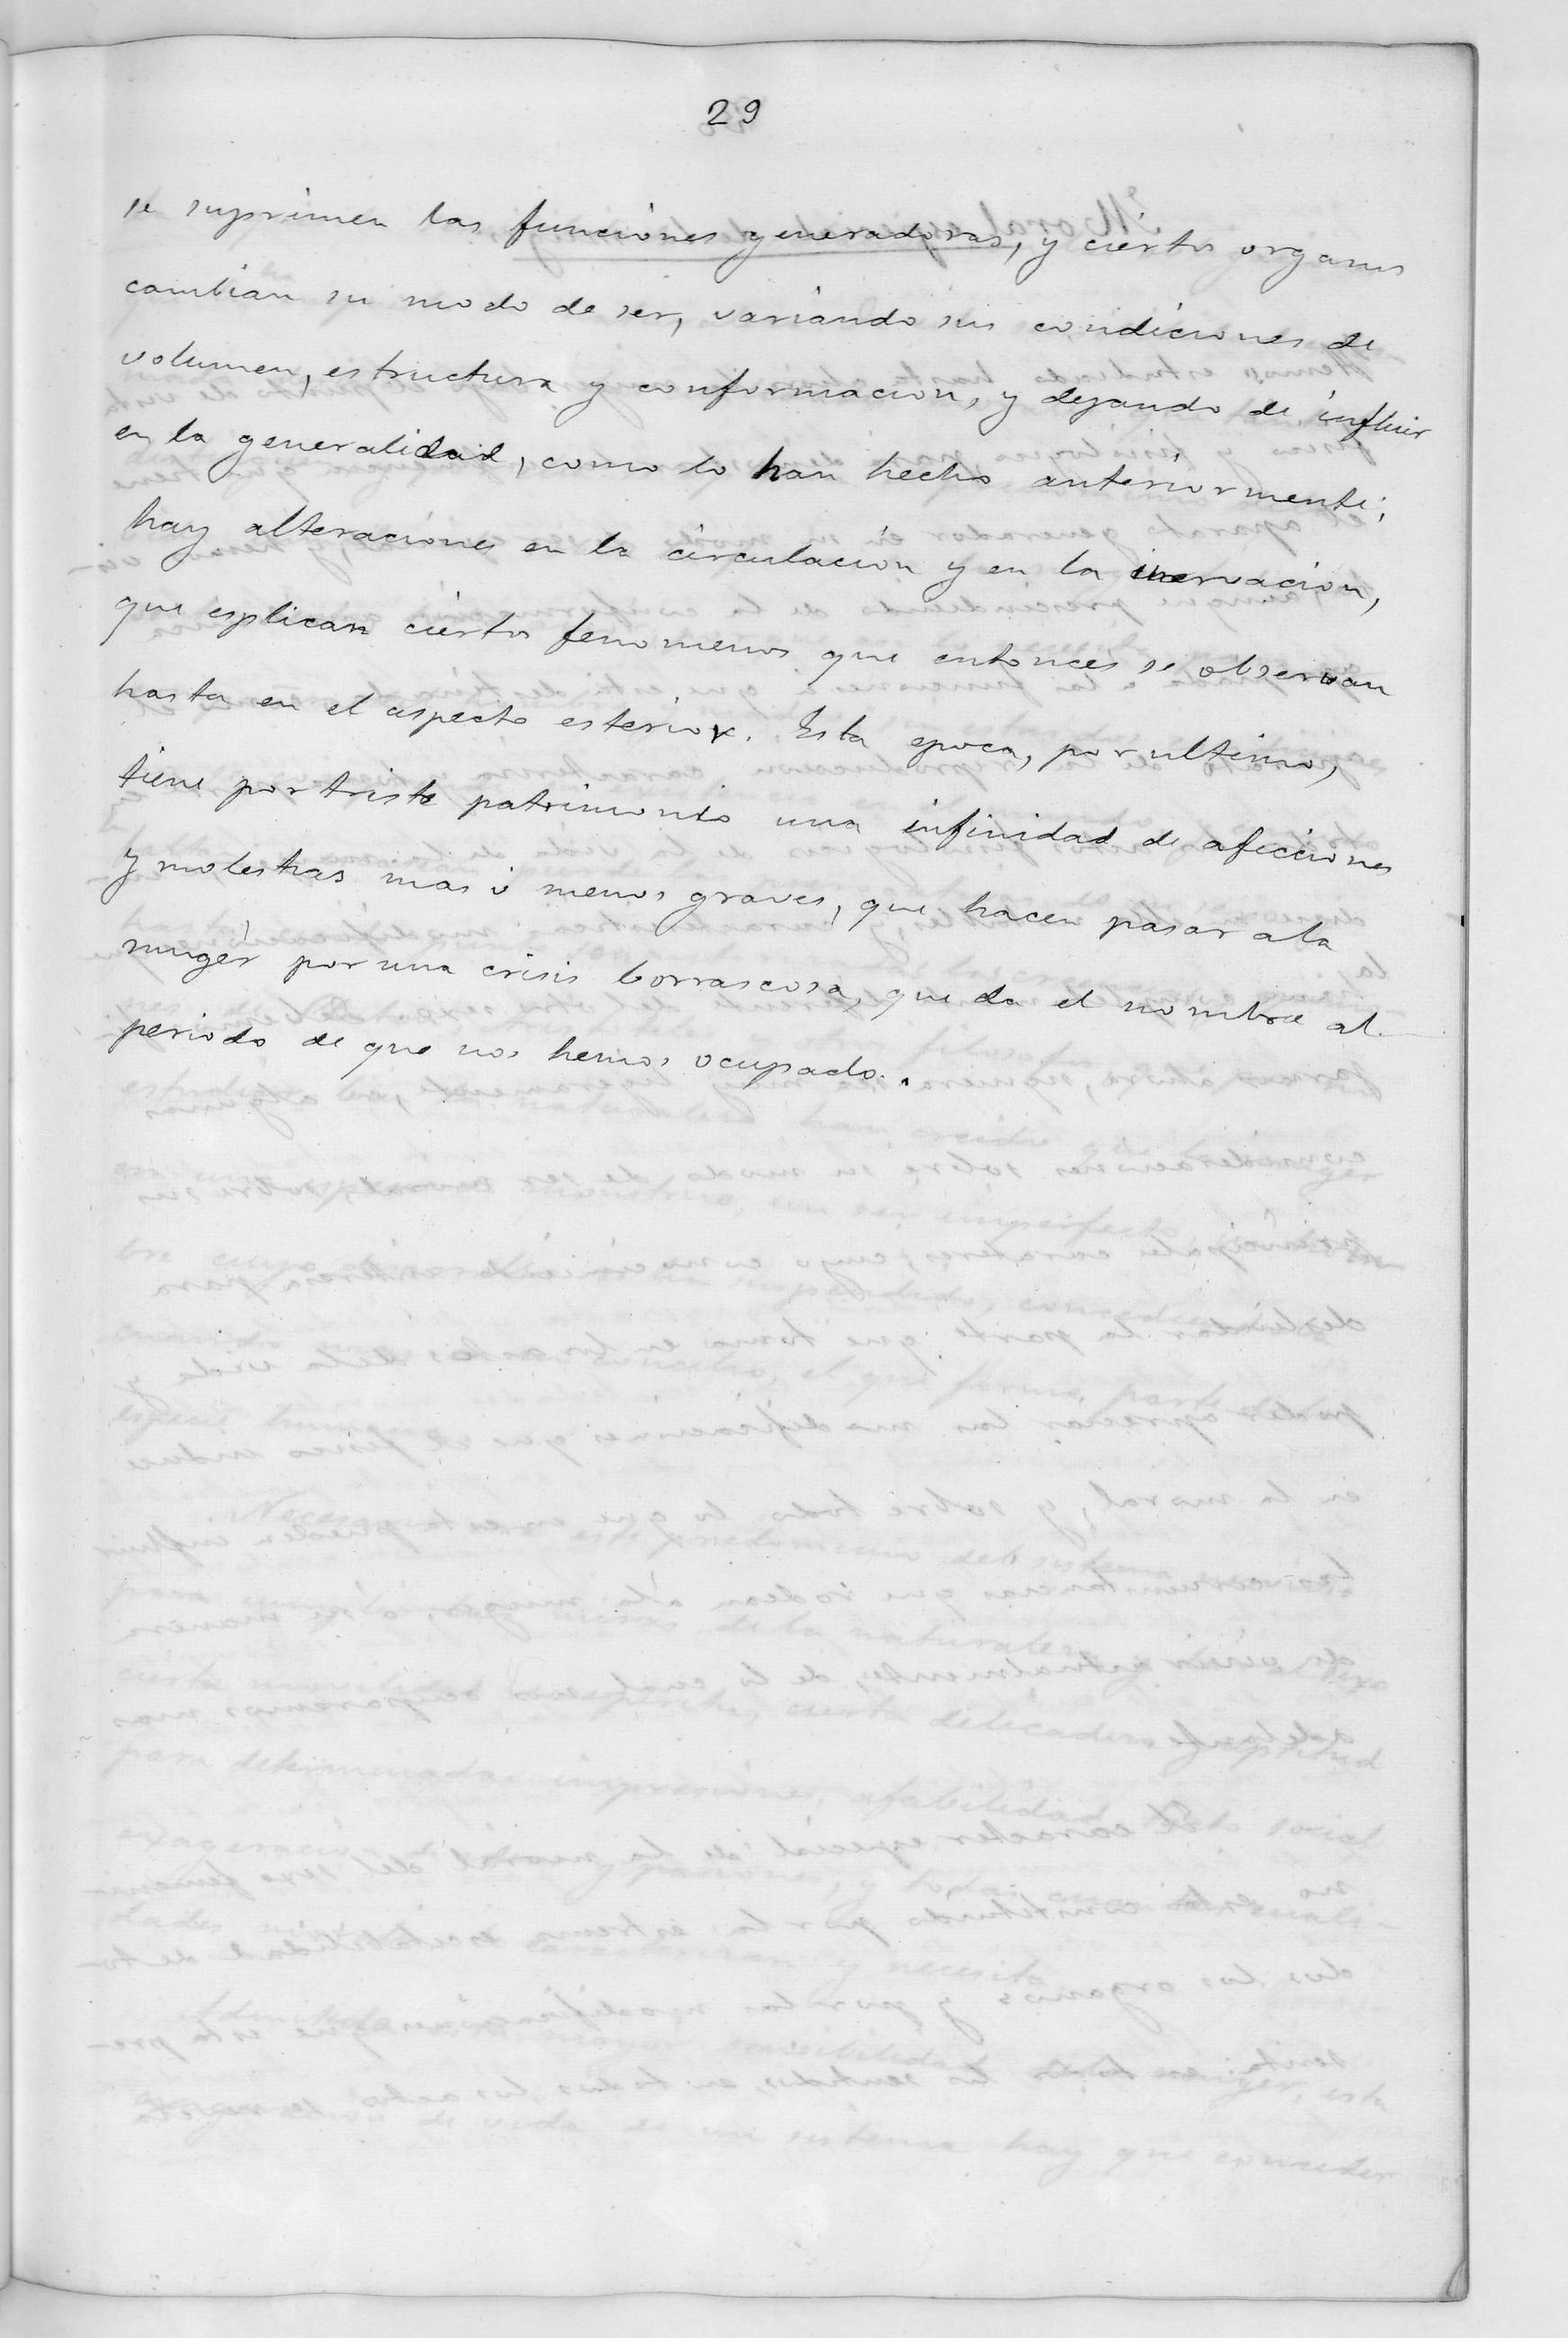 29
se suprimen las funciones generadoras, y ciertos organos
cambian su modo de ser, variando sus condiciones de
volumen, estructura y conformacion, y dejando de influir
en la generalidad, como lo han hecho anteriormente;
hay alteraciones en la circulacion y en la inervacion,
que esplican ciertos fenomenos que entonces se observan
hasta en el aspecto esterior. Esta epoca, por ultimo,
tiene por triste patrimonio una infinidad de afecciones
y molestias mas ó menos graves, que hacen pasar a la
muger por una crisis borrascosa, que da el nombre al
periodo de que nos hemos ocupado.